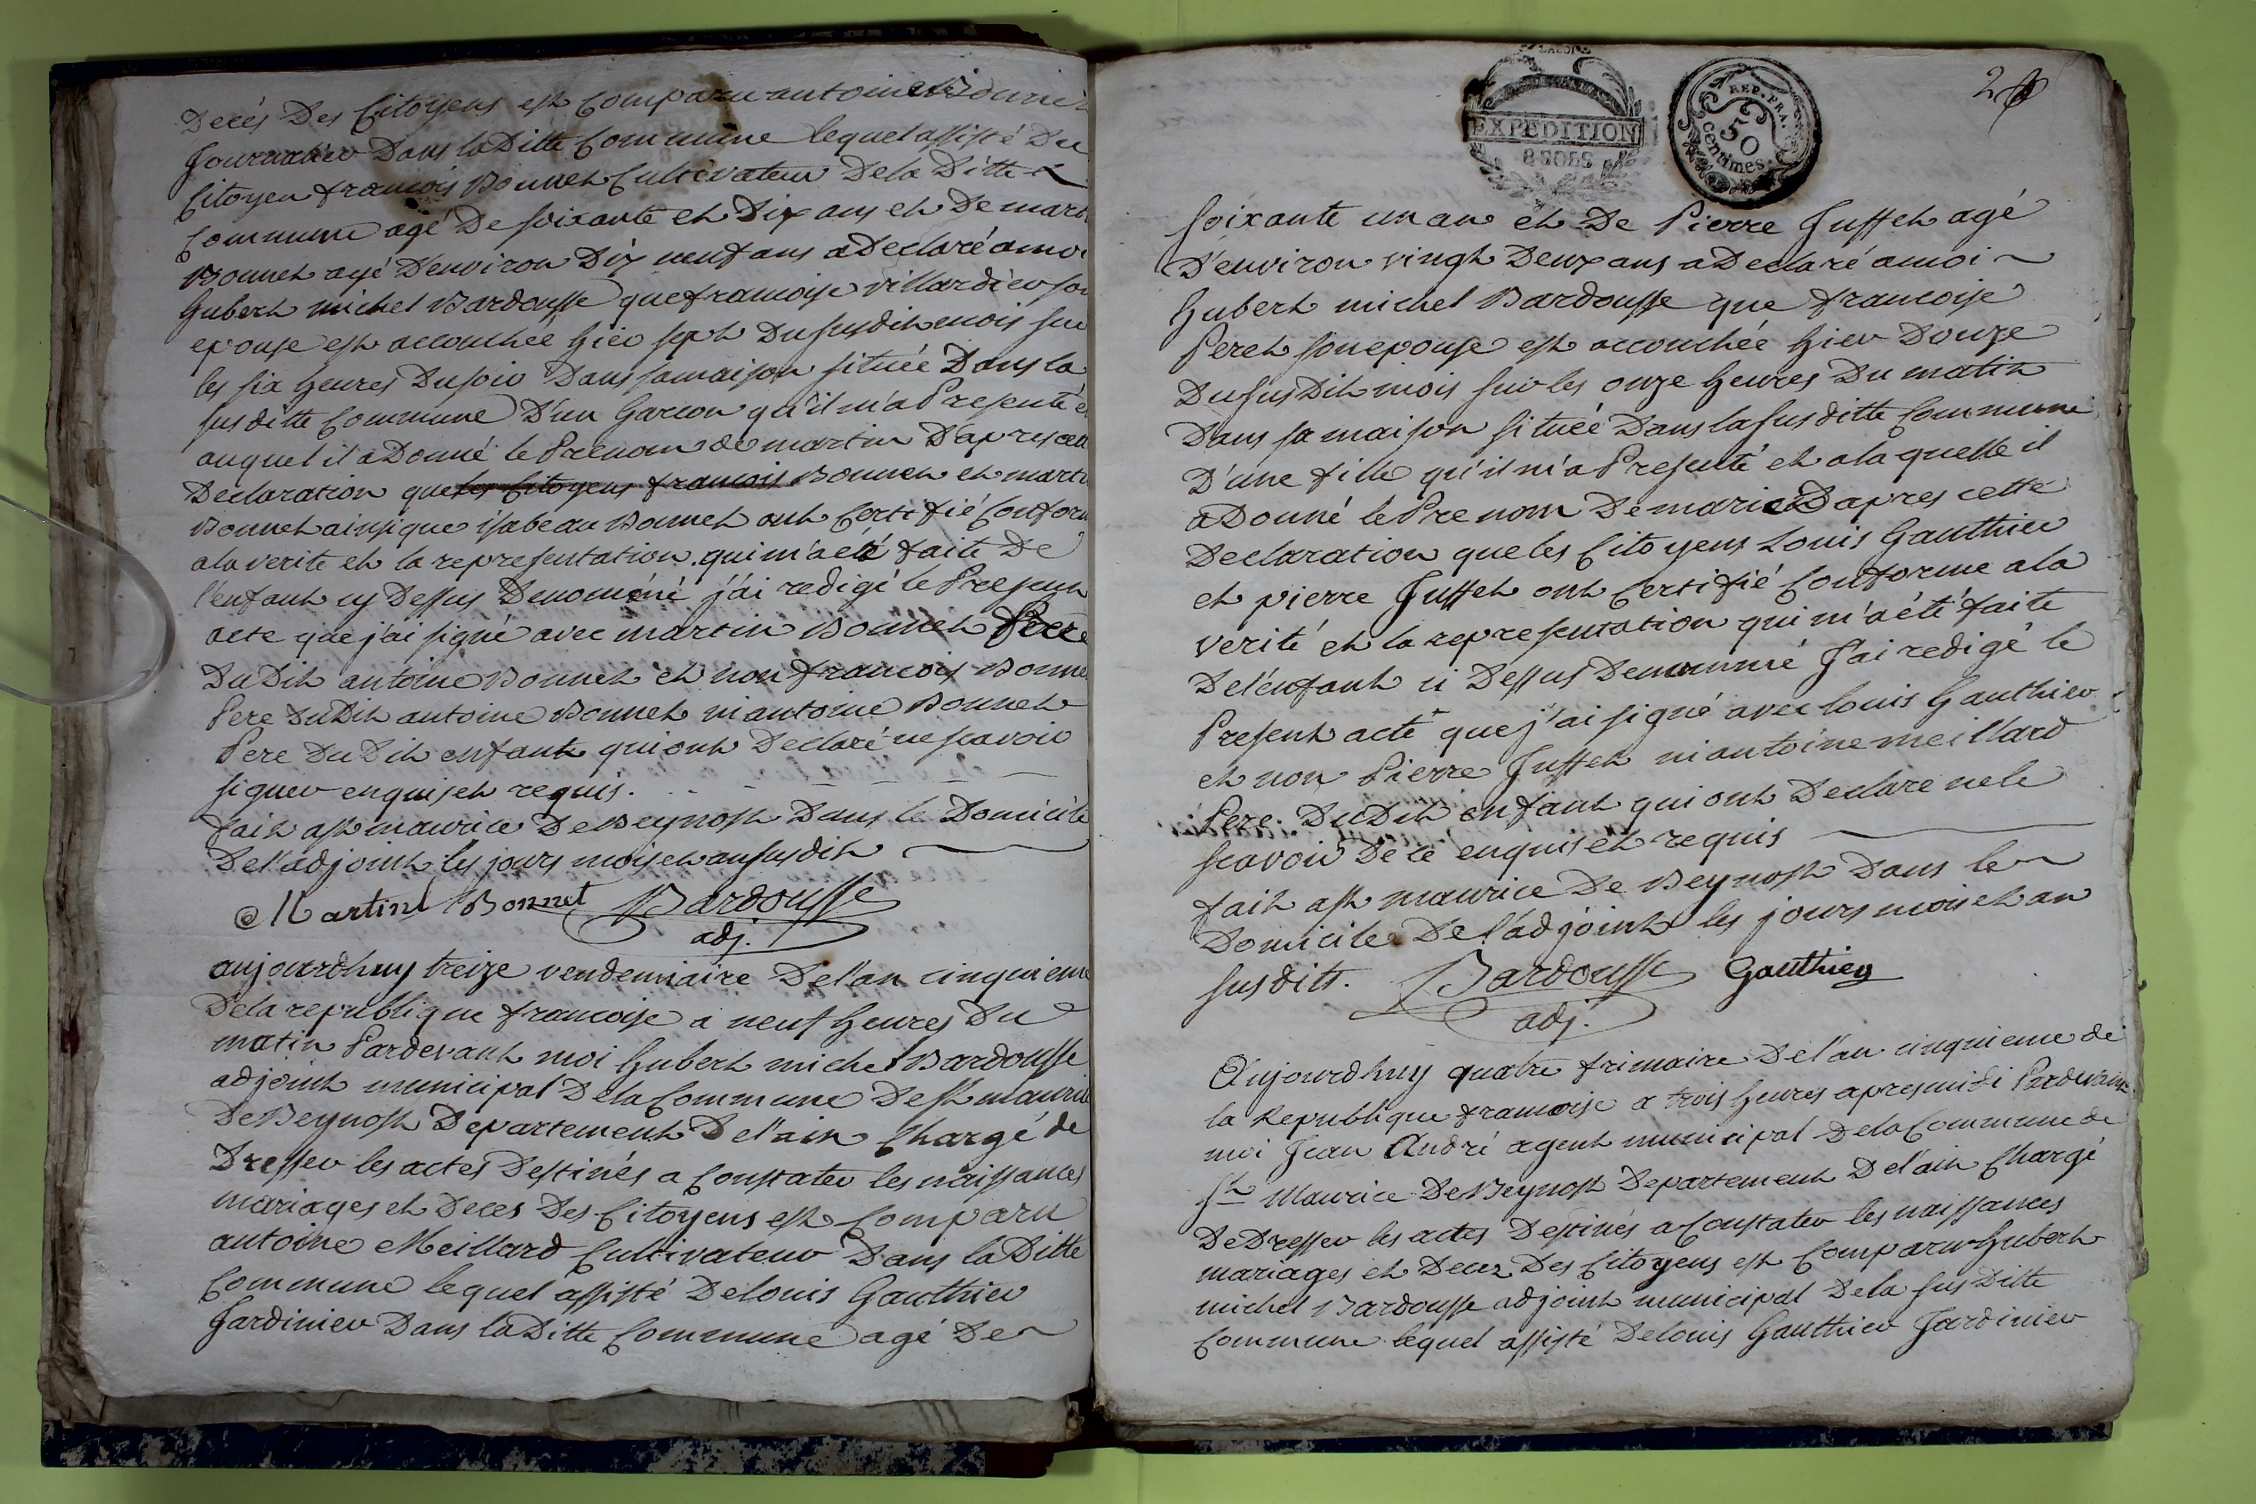 Decés Des Citoyens est Comparu antoine
Journalier Dans la Ditte Commune lequel assisté Du
Citoyen francois Bonnet Cultivateur De la Ditte
Commune agé De soixante et Dix ans et De mart
Bonnet agé D'environ Dix neuf ans a Declaré a moi
hubert michel Bardousse que francoise villardier son
epouse est accouchée hier sept Du susdit mois sur
les six heures Du soir Dans sa maison située Dans la
susditte Commune D'un Garcon qu'il m'a Presenté e
auquel il a Donné le Prenom de martin D'apres cett
Declaration que les Citoyens francois Bonnet et marti
Bonnet ainsi que isabeau Bonnet ont Certifié Conform
a la verite et la representation qui m'a été faite De
l'enfant cy Dessus Denoméné j'ai redigé le Presen
acte que j'ai signé avec martin Bonnet frere
Du Dit antoine Bonnet et non francois Bonne
Pere Du Dit antoine Bonnet ni antoine Bonnet
Pere Du Dit enfant qui ont Declaré ne scavoir
signer enquis et requis.
fait a st maurice De Beynost Dans le Domicile
De l'adjoint les jours mois et an susdit
Martin Bonnet Bardousse
adj.
aujourdhuy treize vendemiaire De l'an cinquieme
De la republique francoise a neuf heures Du
matin Pardevant moi hubert michel Bardousse
adjoint municipal De la Commune De st maurice
De Beynost Departement De l'ain Chargé de
Dresser les actes Destinés a Constater les naissances
mariages et Deces Des Citoyens est Comparu
antoine Meillard Cultivateur Dans la Ditte
Commune lequel assisté De louis Gauthier
Jardinier Dans la Ditte Commune agé De
EXPEDITION
REP. FRA.
50
centimes.
2
soixante un an et De Pierre Juffet agé
D'environ vingt Deux ans a Declaré a moi
hubert michel Bardousse que francoise
Peret son epouse est accouchée hier Douze
Du susDit mois sur les onze heures Du matin
Dans sa maison située Dans la susditte Commune
D'une fille qu'il m'a Presenté et a la quelle il
a Donné le Prenom De marie D'apres cette
Declaration que les Citoyens Louis Gauthier
et pierre Juffet ont Certifié Conforme a la
verité et la representation qui m'a été faite
De l'enfant ci Dessus Denommé J'ai redigé le
Present acte que j'ai signé avec louis Gauthier
et non Pierre Juffet ni antoine meillard
Pere Du Dit enfant qui ont Declare ne le
scavoir De ce enquis et requis
fait a st maurice De Beynost Dans le
Domicile De l'adjoint les jours mois et an
susdits. Bardousse Gauthier
adj.
Aujourdhuy quatre frimaire De l'an cinquieme de
la Republique francoise a trois heures apres midi Pardevant
moi Jean André agent municipal De la Commune de
st Maurice De Beynost Departement De l'ain Chargé
De Dresser les actes Destinés a Constater les naissances
mariages et Decez Des Citoyens est Comparu hubert
michel Bardousse adjoint municipal De la susDitte
Commune lequel assisté De louis Gauthier Jardinier